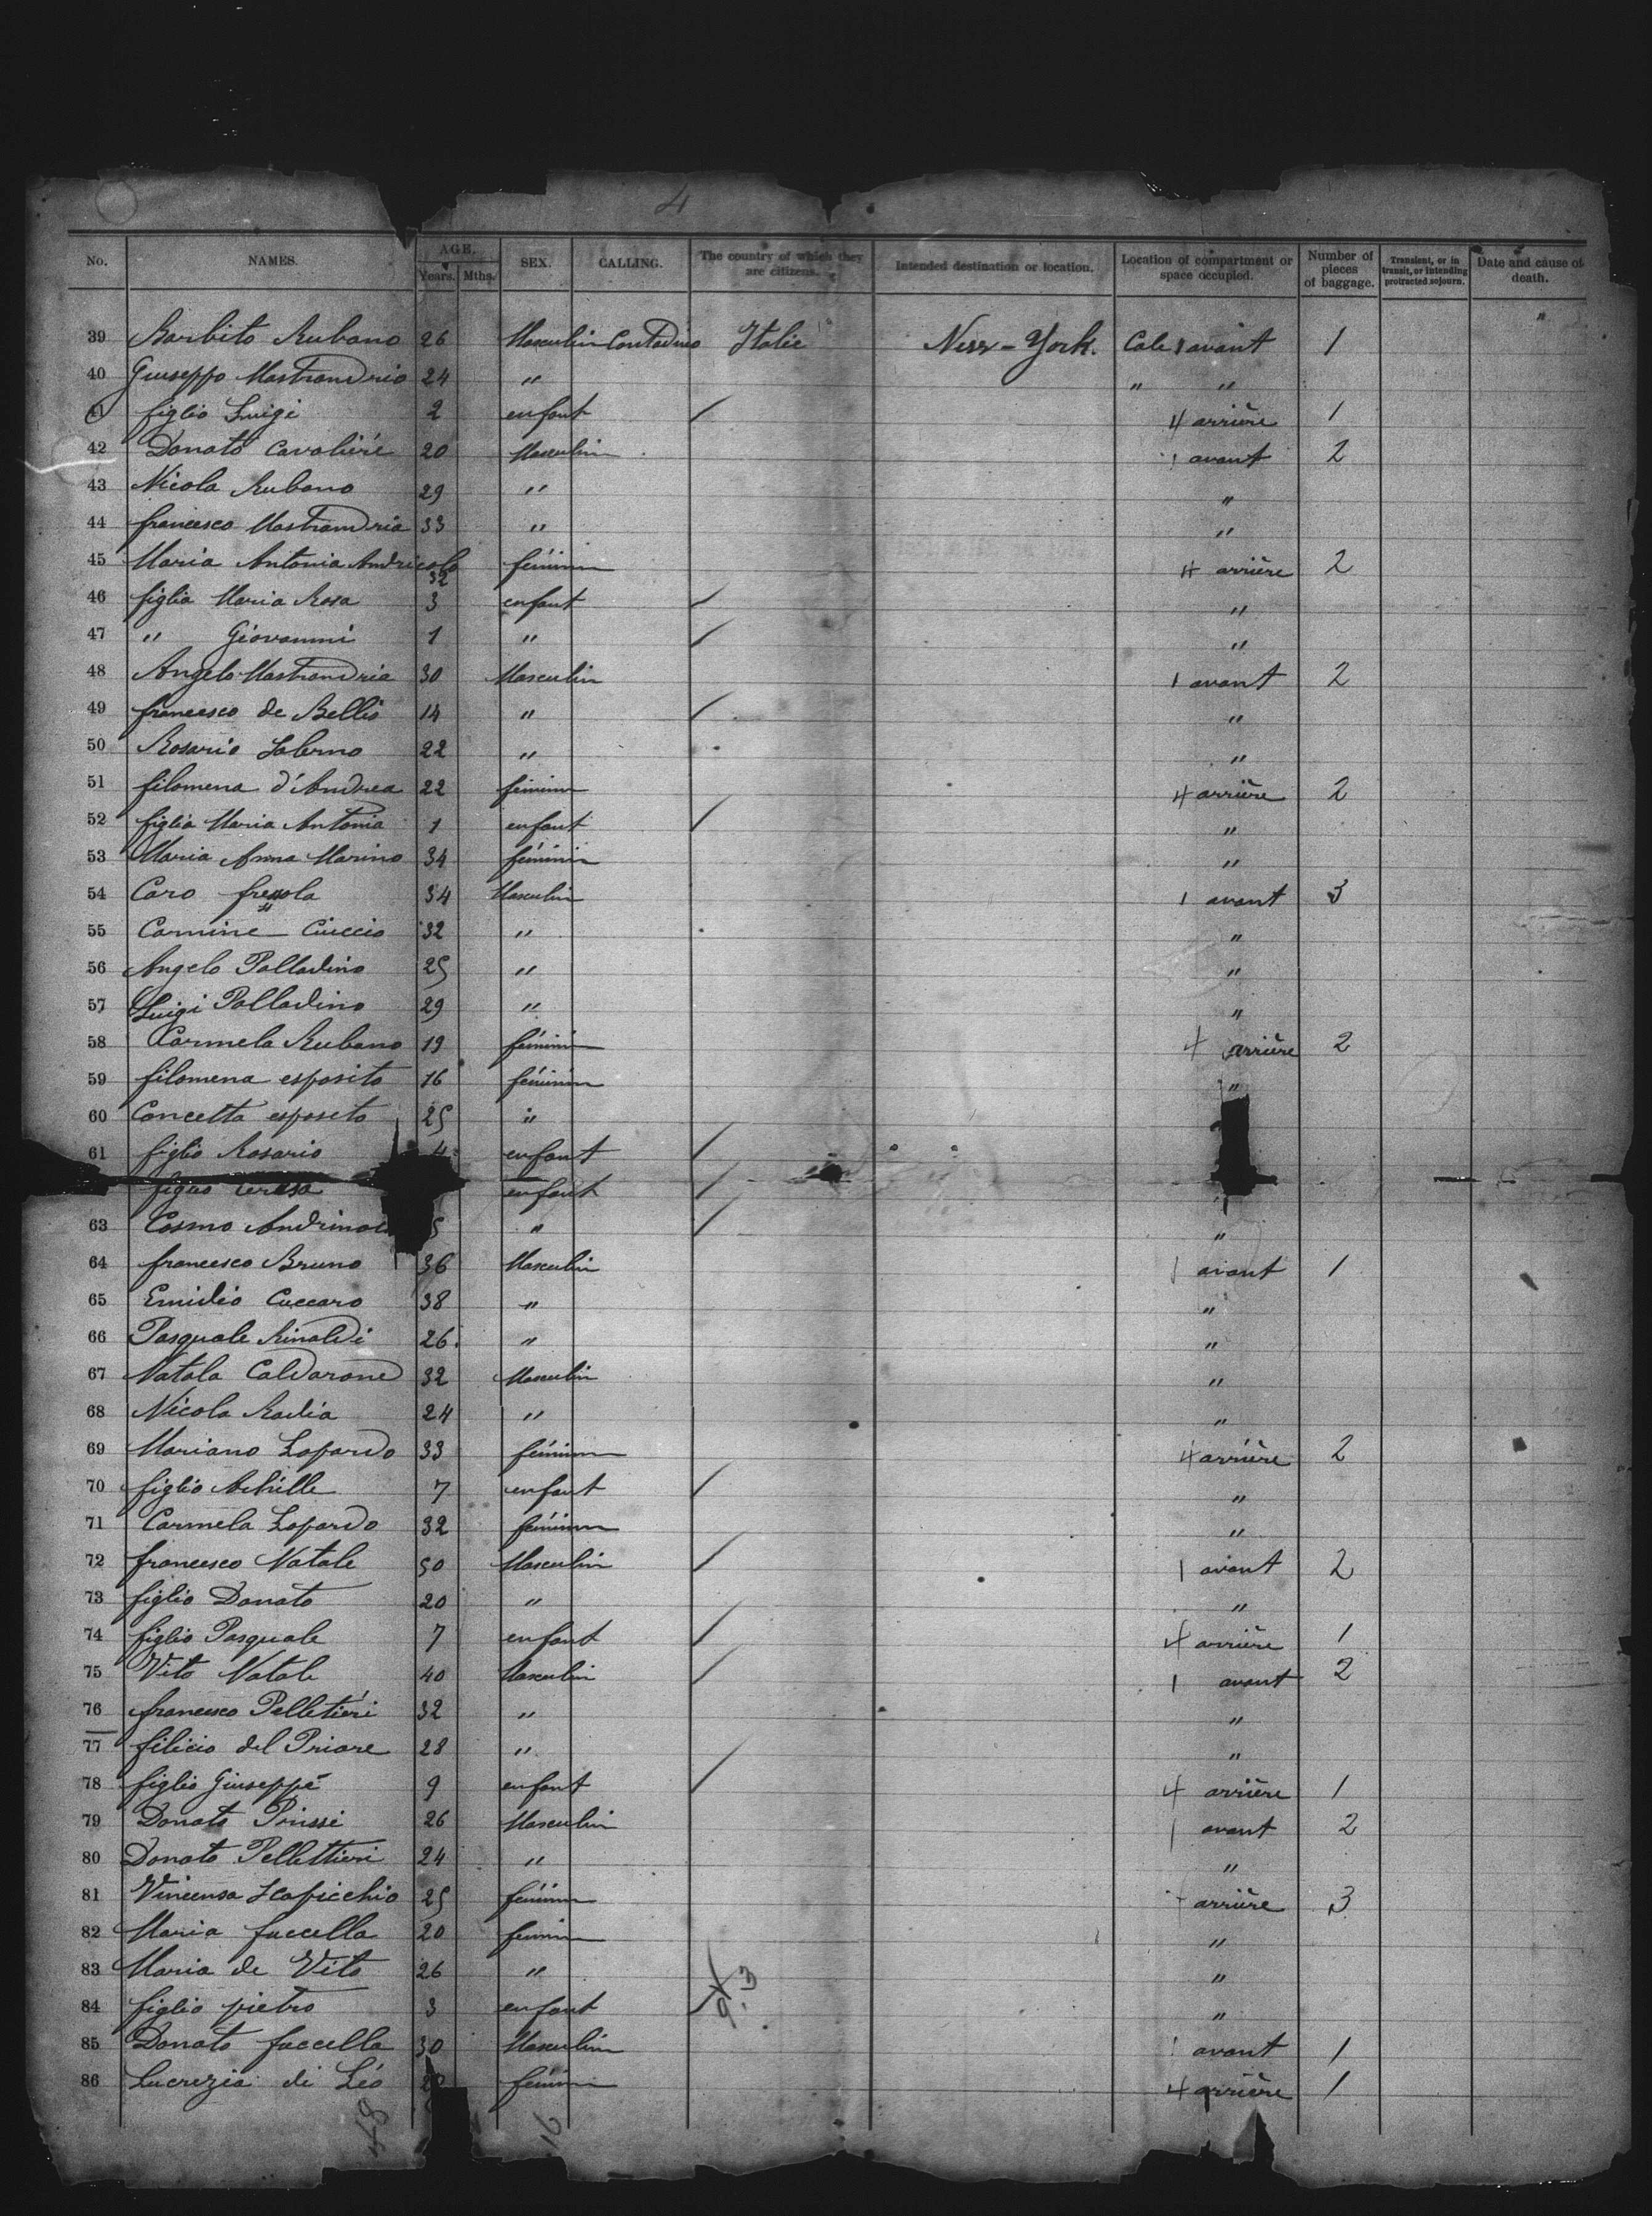 4
No. NAMES. AGE. Years. Mths. SEX. CALLING. The country of which they are citizens. Intended destination or location. Location of compartment or space occupied. Number of pieces of baggage. Transient, or in transit, or intending protracted sojourn. Date and cause of death.
39 Barbito Rubano 26 Masculin Contadino Italie New-York. Cale 1 avant 1
40 Giuseppo Mastrandrio 24 " " "
41 figlio Luigi 2 enfant 4 arrière 1
42 Donato Cavalieré 20 Masculin 1 avant 2
43 Nicola Rubano 29 " "
44 francesco Mastrandria 33 " "
45 Maria Antonia Andricola 32 féminin 4 arrière 2
46 figlia Maria Rosa 3 enfant "
47 " Giovanni 1 " "
48 Angelo Mastrandria 30 Masculin 1 avant 2
49 francesco de Bellis 14 " "
50 Rosario Salerno 22 " "
51 filomena d'Andrea 22 féminin 4 arrière 2
52 figlia Maria Antonia 1 enfant "
53 Maria Anna Marino 34 féminin "
54 Caro 34 Masculin 1 avant 3
55 Carmine Ciuccio 32 " "
56 Angelo Palladino 25 " "
57 Luigi Palladino 29 " "
58 Carmela Rubano 19 féminin 4 arrière 2
59 filomena esposito 16 féminin "
60 Concetta esposito 25 "
61 figlio Rosario 4 enfant
enfant
63 Cosmo 5 " "
64 francesco Bruno 36 Masculin 1 avant 1
65 Emidio Cuccaro 38 " "
66 Pasquale Rinaldi 26 " "
67 Natala Caldarone 32 Masculin "
68 Nicola Radia 24 " "
69 Mariano Lopardo 33 féminin 4 arrière 2
70 figlio Achille 7 enfant "
71 Carmela Lopardo 32 féminin "
72 francesco Natale 50 Masculin 1 avant 2
73 figlio Donato 20 " "
74 figlio Pasquale 7 enfant 4 arrière 1
75 Vito Natale 40 Masculin 1 avant 2
76 francesco Pelletieri 32 " "
77 filicio del Priore 28 " "
78 figlio Giuseppé 9 enfant 4 arrière 1
79 Donato 26 Masculin 1 avant 2
80 Donato Pellettieri 24 " "
81 Vincensa Scapicchio 25 féminin arrière 3
82 Maria fuccella 20 féminin "
83 Maria de Vito 26 " "
84 figlio pietro 3 enfant "
85 Donato fuccella 30 Masculin 1 avant 1
86 Lucrezia di Léo féminin 4 arrière 1
48 16